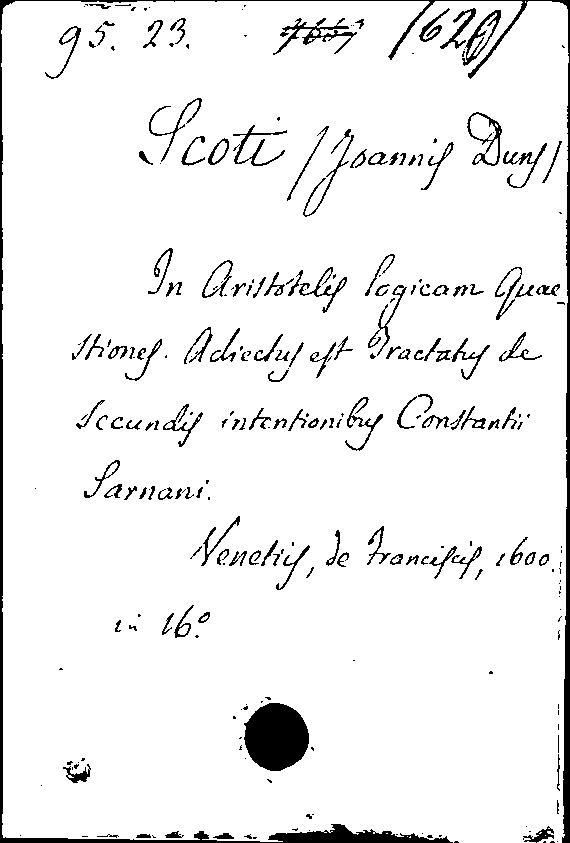 95. 23. (620)
Scoti (Joannis Duns)
In Aristotelis logicam Quae-
stiones. Adiectus est Tractatus de
secundis intentionibus Constantii
Sarnani.
Venetiis, de Franciscis, 1600.
in 16º